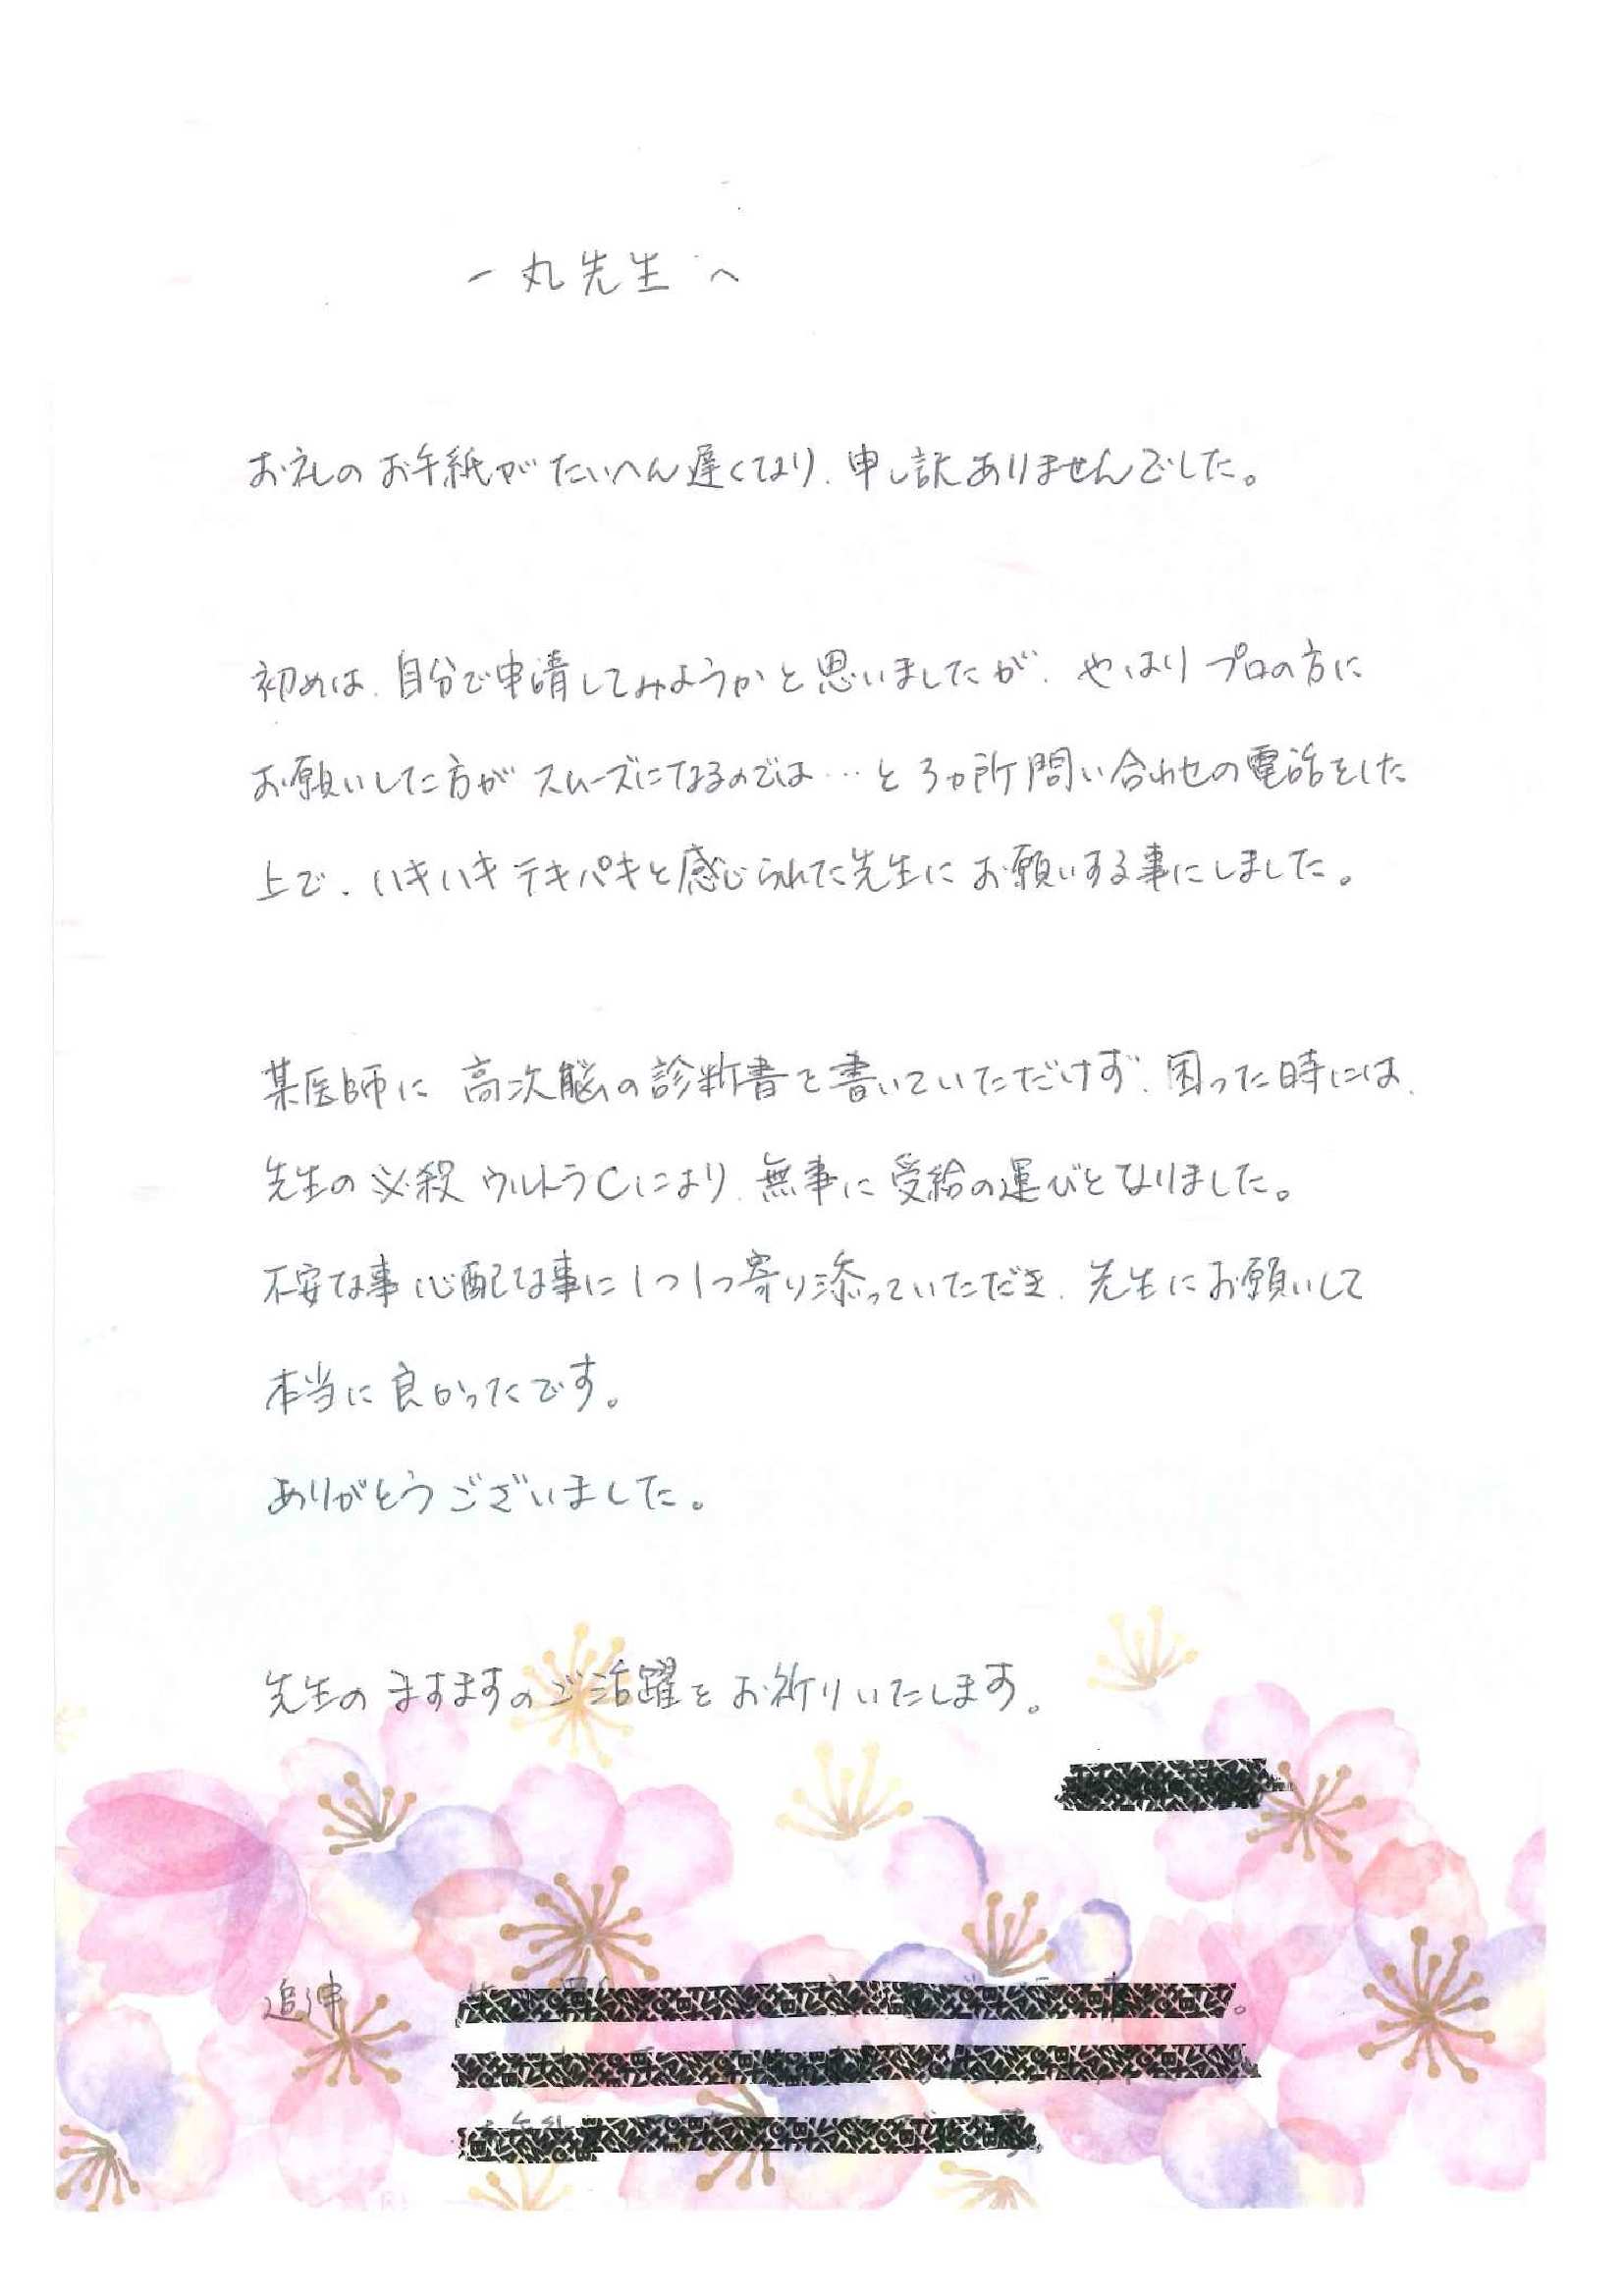 一丸先生へ
お礼のお手紙がたいへん遅くなり、申し訳ありませんでした。
初めは、自分で申請してみようかと思いましたが、やはりプロの方に
お願いした方がスムーズになるのでは…と3ヵ所問い合わせの電話をした
上で、ハキハキテキパキと感じられた先生にお願いする事にしました。
某医師に高次脳の診断書を書いていただけず、困った時には、
先生の必殺ウルトラCにより、無事に受給の運びとなりました。
不安な事心配な事に1つ1つ寄り添っていただき、先生にお願いして
本当に良かったです。
ありがとうございました。
先生のますますのご活躍をお祈りいたします。
追伸